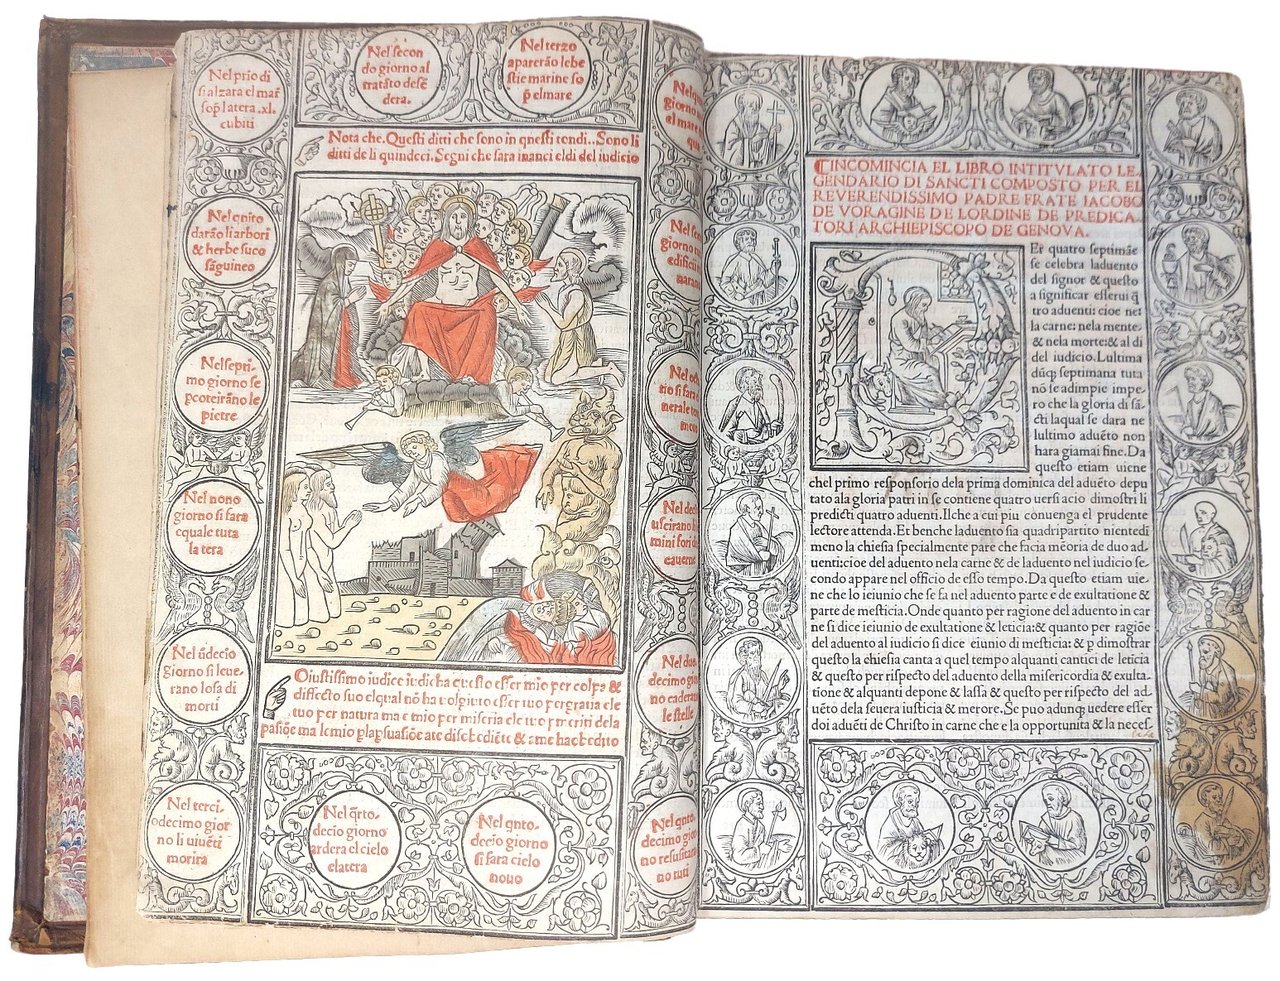 Nel prīo di
si alzara el mar
sop̄ la tera .xl.
cubiti
Nel secon
do giorno al
tratāto desc̄e
dera.
Nel terzo
aparerāo le be
stie marine so
p̄ el mare
Nel
giorno
el mare
Nota che. Questi ditti che sono in questi tondi.. Sono li
ditti de li quindeci. Segni che sara inanci el di del iudicio
Nel qnito
darāo li arbori
& herbe suco
sāguineo
giorno
edificii
Nel septi-
mo giorno se
pcoteirāno le
pietre
Nel
si fara
nerale
Nel nono
giorno si fara
equale tuta
la tera
Nel
usciranno
mini fori de
cauerne
Nel ūdecio
giorno si leue,
rano losa di
morti
Nel duo
decimo
no caderan
le stelle
Oiustissimo iudice iudicha questo esser mio per colpa &
diffecto suo el qual nō ha volgiuto esser tuo per gratia ele
tuo per natura ma e mio per miseria ele tuo p meriti de la
pasiōe ma le mio p la p̄suasiōe a te disebediēte & a me ha obedito
Nel terci-
odecimo gior
no li uiuēti
morira
Nel q̄rto-
decio giorno
ardera el cielo
elatera
Nel qnto-
decio giorno
si fara cielo
nouo
Nel qnto,
decimo gior
no resusitara
no tuti
CINCOMINCIA EL LIBRO INTITVLATO LE,
GENDARIO DI SANCTI COMPOSTO PER EL
REVERENDISSIMO PADRE FRATE IACOBO
DE VORAGINE DE LORDINE DE PREDICA,
TORI ARCHIEPISCOPO DE GENOVA.
Er quatro septimāe
se celebra laduento
del signor & questo
a significar esserui q̄
tro aduenti: cioe nel
la carne: nela mente:
& nela morte: & al di
del iudicio. Lultima
dūq̄ septimana tuta
nō se adimpie impe,
ro che la gloria di sā-
cti laqual se dara ne
lultimo aduēto non
hara giamai fine. Da
questo etiam uiene
chel primo responsorio dela prima dominica del aduēto depu
tato ala gloria patri in se contiene quatro uersi acio dimostri li
predicti quatro aduenti. Ilche a cui piu cōuenga el prudente
lectore attenda. Et benche laduento sia quadripartito nientedi
meno la chiesia specialmente pare che facia mēoria de duo ad-
uenti: cioe del aduento nela carne & de laduento nel iudicio se,
condo appare nel officio de esso tempo. Da questo etiam uie-
ne che lo ieiunio che se fa nel aduento parte e de exultatione &
parte de mesticia. Onde quanto per ragione del aduento in car
ne si dice ieiunio de exultatione & leticia: & quanto per ragiōe
del aduento al iudicio si dice eiunio di mesticia: & p dimostrar
questo la chiesia canta a quel tempo alquanti cantici de leticia
& questo per rispecto del aduento della misericordia & exulta-
tione & alquanti depone & lassa & questo per rispecto del ad-
uēto della seuera iusticia & merore. Se puo adunq̄ uedere esser
doi aduēti de Christo in carne che e la opportunita & la neces,